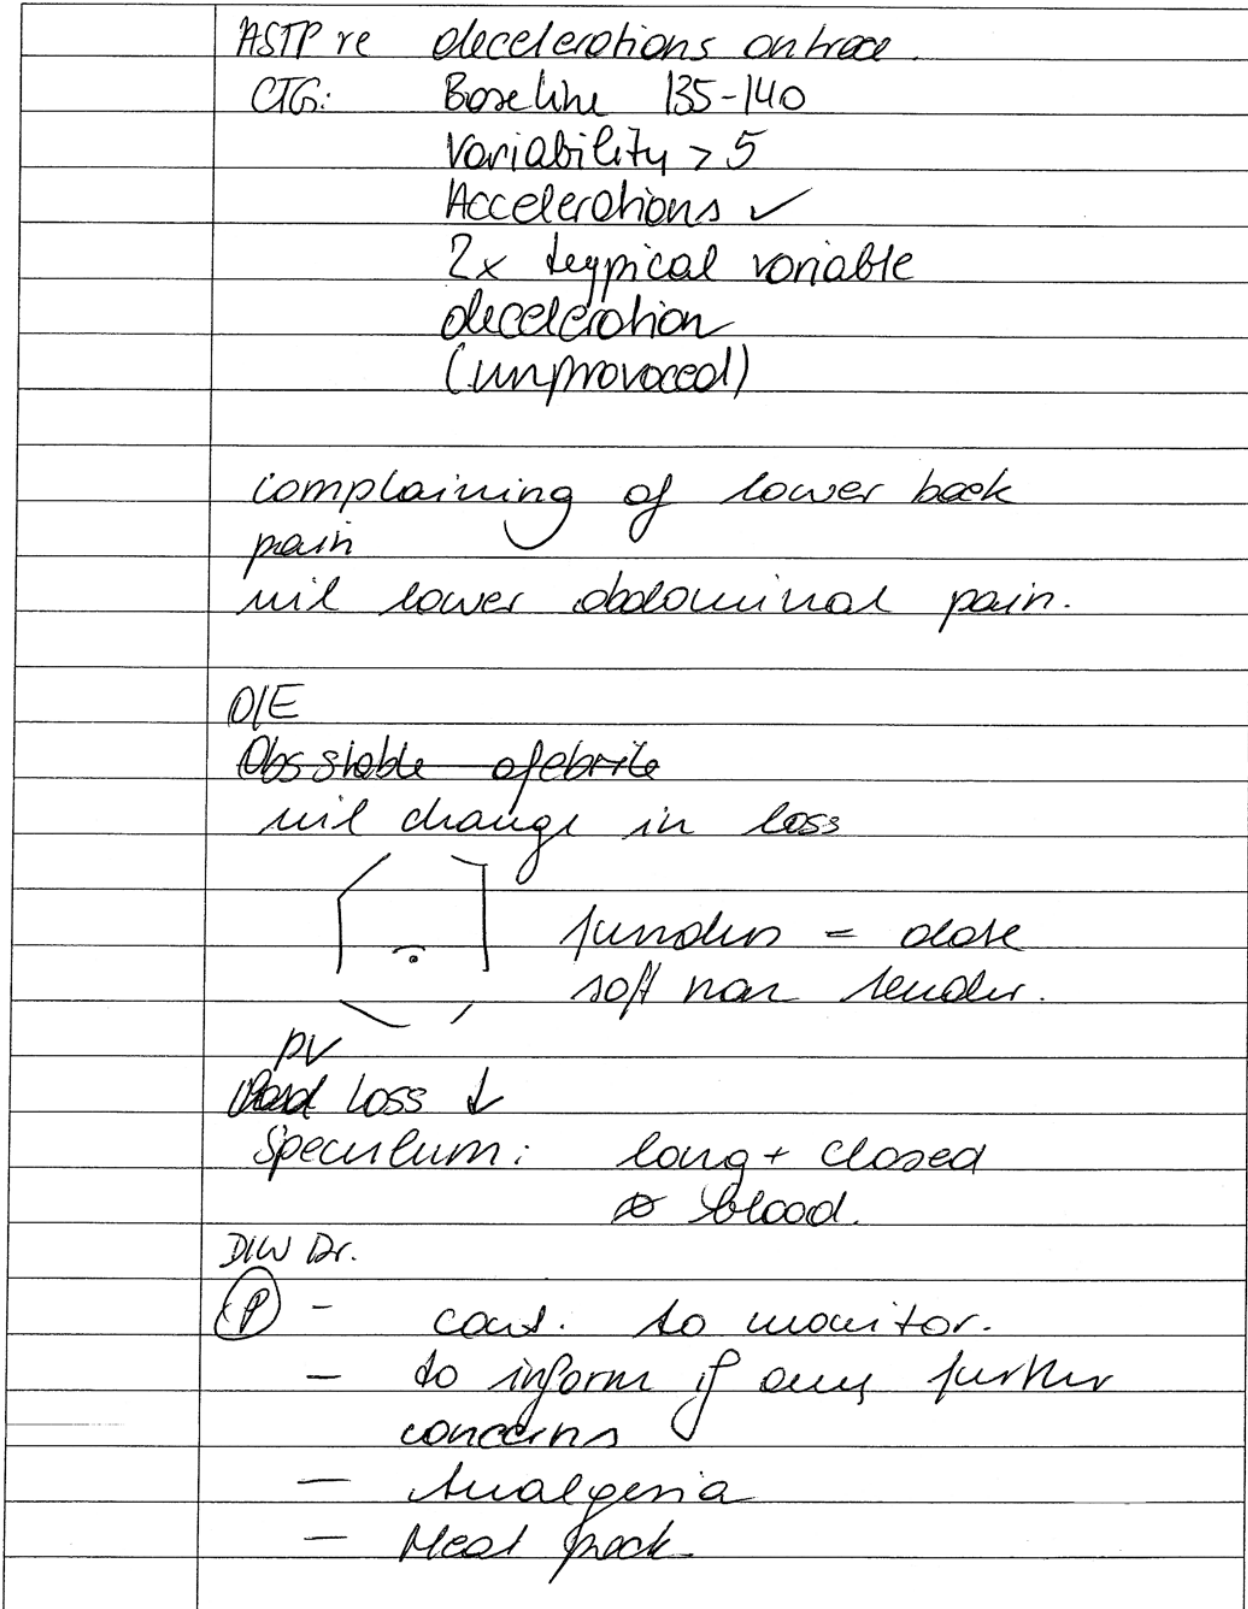 ASTP re decelerations on trace.
CTG: Baseline 135-140
Variability > 5
Accelerations ✓
2x typical variable
deceleration
(unprovoced)
complaining of lower back
pain
nil lower abdominal pain.
O/E
Obs stable afebrile
nil change in loss
fundus = date
soft non tender.
PV
loss ↓
Speculum: long + closed
blood.
D/W Dr.
(P) - cont. to monitor.
- to inform if any further
concerns
- Analgesia
- Heat pack